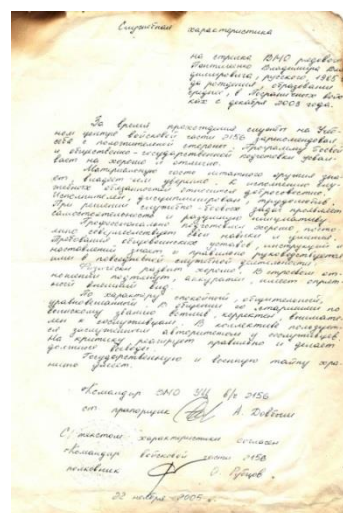 Служебная характеристика
на стрелка ВМО рядового
Пантиленко Владимира Вла-
димировича, русского, 1985
года рождения, образование
среднее, в Пограничных войс-
ках с декабря 2003 года.
За время прохождения службы на Учеб-
ном центре войсковой части 2156 зарекомендовал
себя с положительной стороны. Программу боевой
и общественно-государственной подготовки усваи-
вает на хорошо и отлично.
Материальную часть штатного оружия зна-
ет, владеет им уверенно. К исполнению слу-
жебных обязанностей относится добросовестно.
Исполнителен, дисциплинирован, трудолюбив.
При решении служебно-боевых задач проявляет
самостоятельность и разумную инициативу.
Профессионально подготовлен хорошо, посто-
янно совершенствует свои навыки и умения.
Требования общевоинских уставов, инструкций и
наставлений знает и правильно руководствуется
ими в повседневной служебной деятельности.
Физически развит хорошо. В строевом от-
ношении подтянут, аккуратен, имеет опрят-
ный внешний вид.
По характеру спокойный, общительный,
уравновешенный. В общении со старшими по
воинскому званию вежлив, корректен, внимате-
лен к сослуживцам. В коллективе пользует-
ся заслуженным авторитетом у сослуживцев.
На критику реагирует правильно и делает
должные выводы.
Государственную и военную тайну хра-
нить умеет.
Командир ВМО УЦ в/ч 2156
ст. прапорщик А. Довбыш
С текстом характеристики согласен
Командир войсковой части 2156
полковник О. Рубцов
22 ноября 2005 г.